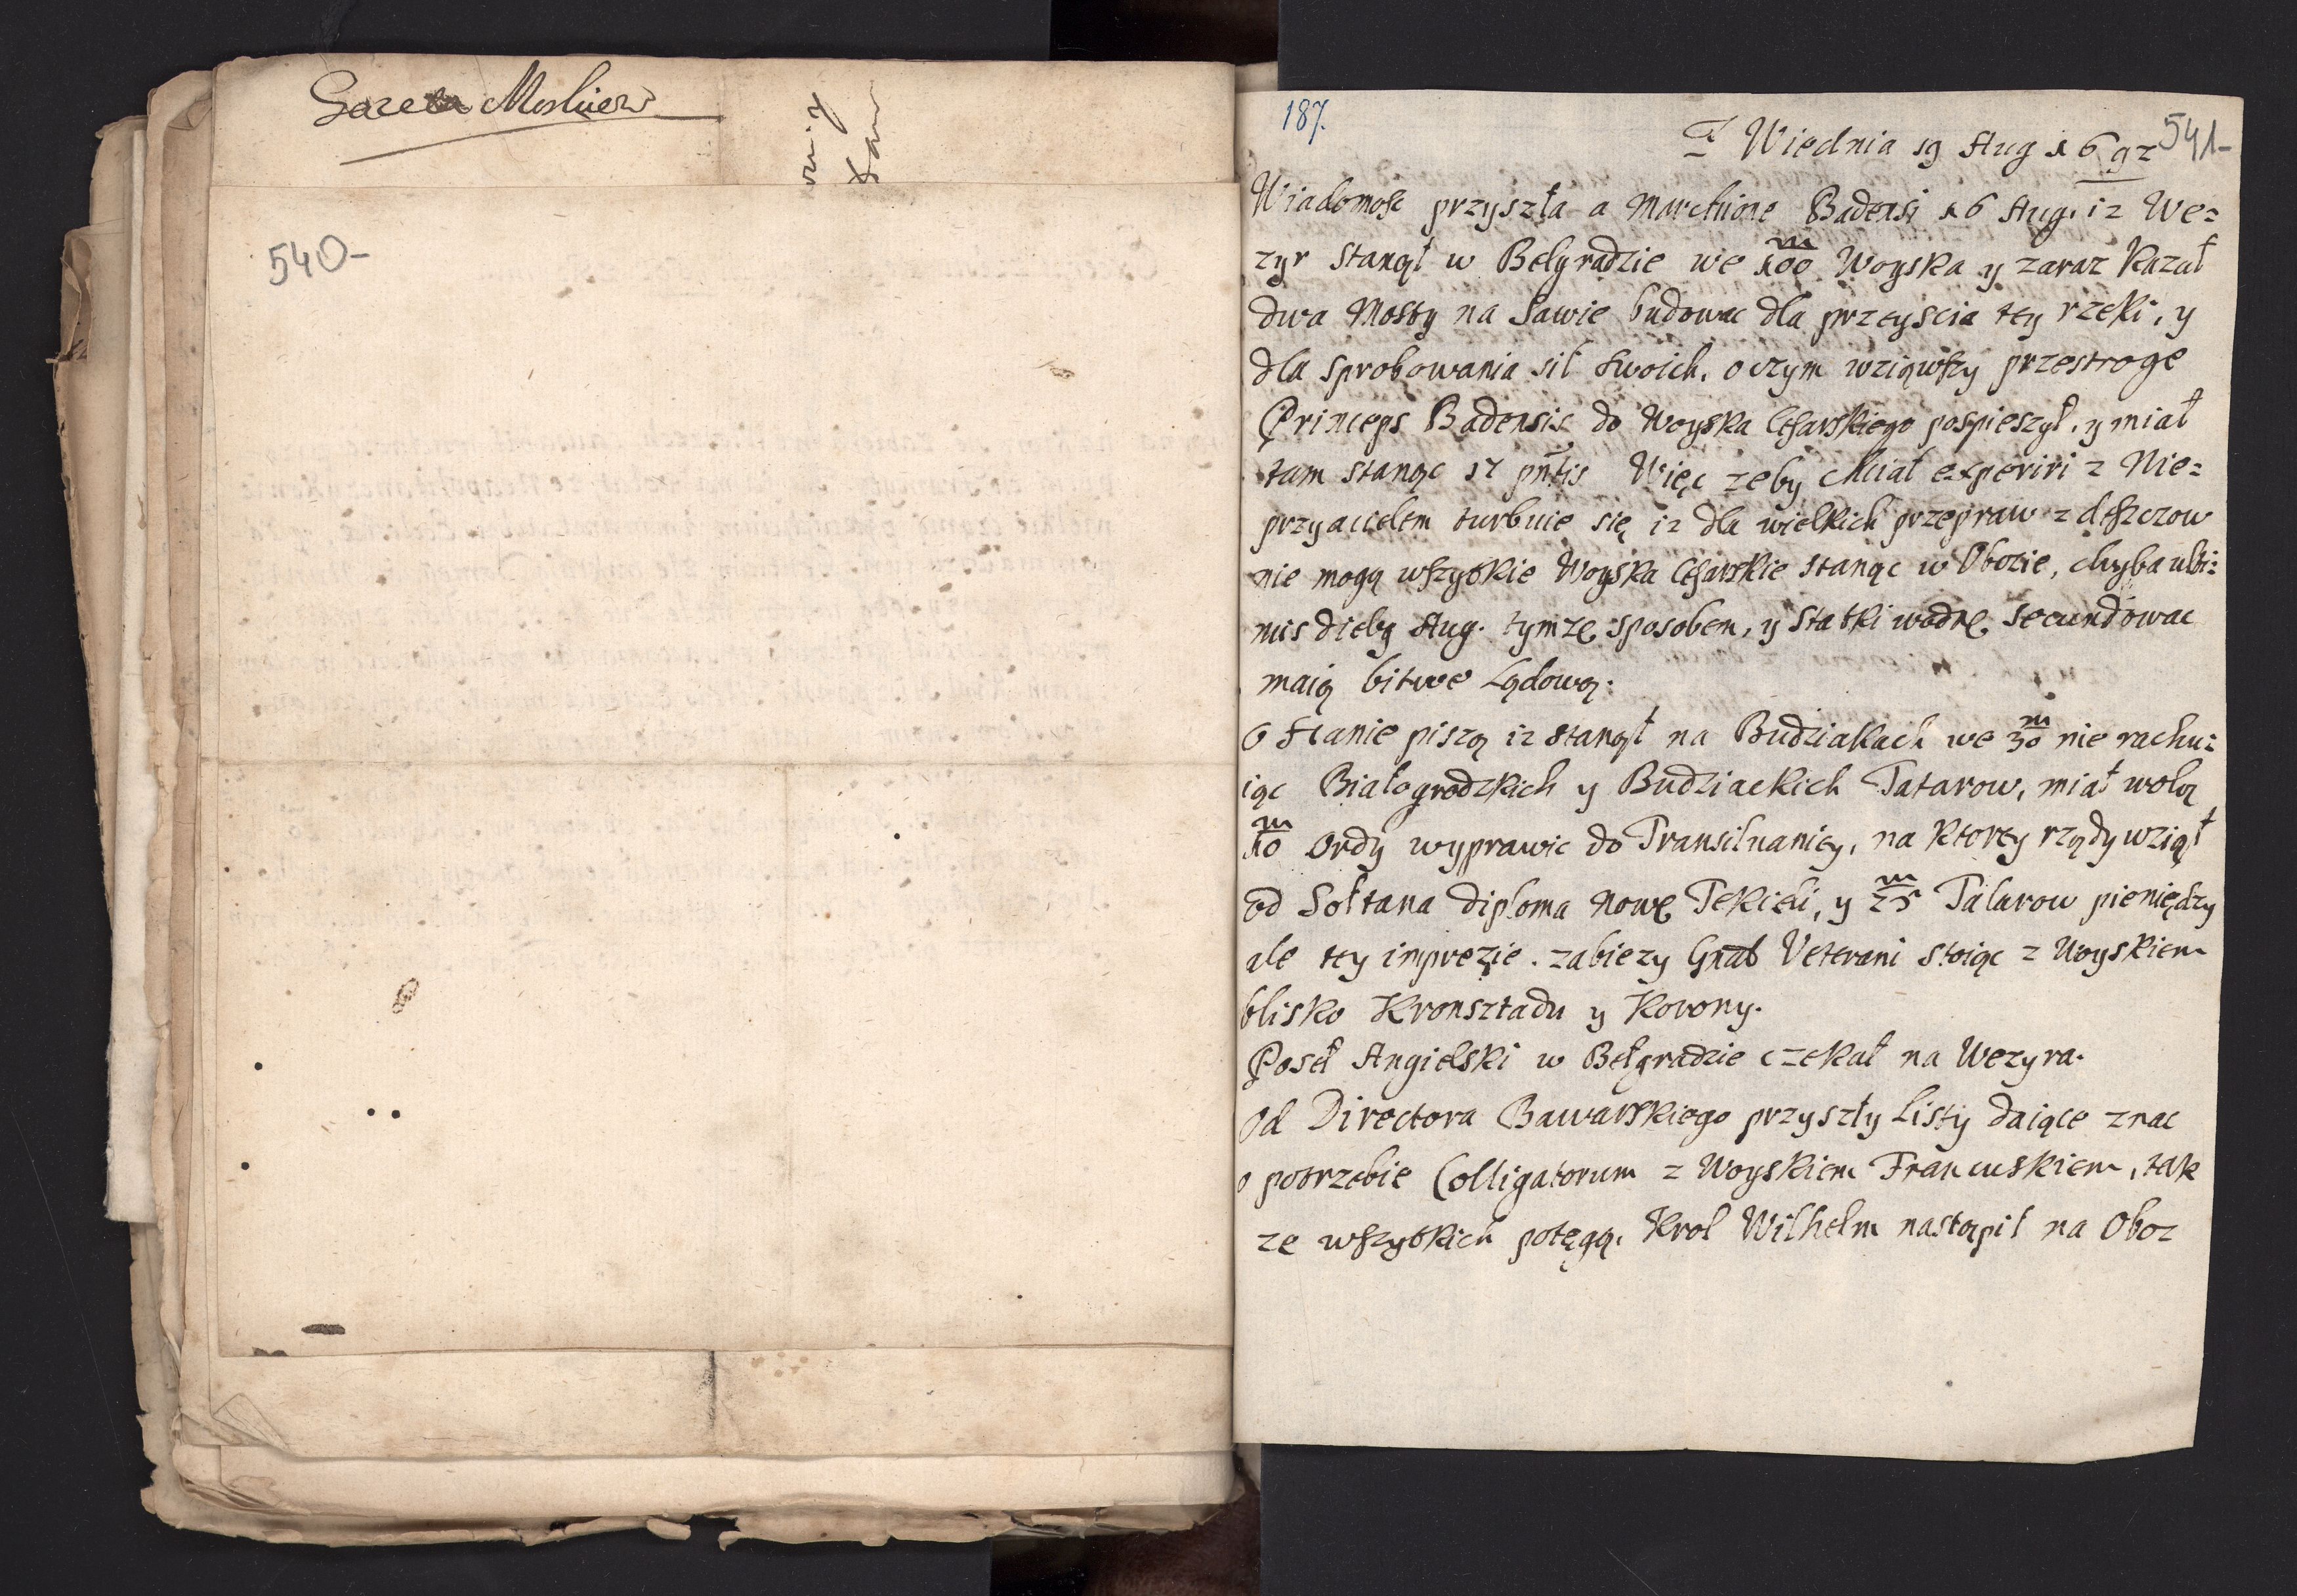 Gazeta Moskiews
540-
187.
541-
Z Wiednia 19 Aug 1692
Wiadomosc przyszła a Marchione Badensi 16 Aug. iz We=
zyr stanął w Belgradzie we 100 m Woyska y zaraz kazał
dwa Mosty na Sawie budowac dla przeyscia tey rzeki, y
dla sprobowania sił swoich, o czym wziąwszy przestroge
Princeps Badensis do Woyska Cesarskiego pospieszył, y miał
tam stanąc 17 pntis Więc zeby chciał experiri z Nie=
przyacielem turbuie się iz dla wielkich przepraw z deszczow
nie mogą wszytkie Woyska Cesarskie stanąc w Obozie, chyba ulti=
mis dieby Aug. tymze sposobem, y Statki wodne secundowac
maią bitwe Lądową.
O Hanie piszą iz stanął na Budziakach we 30 m nie rachu=
iąc Białogrodzkich y Budziackich Tatarow, miał wolą
10 m Ordy wyprawic do Transilvaniey, na ktorey rządy wziął
od Sołtana diploma nowe Tekieli, y 25 m Talarow pieniędzy
ale tey imprezie zabiezy Gnał Veterani stoiąc z Woyskiem
blisko Kronsztadu y Korony.
Poseł Angielski w Belgradzie czekał na Wezyra.
Od Directora Bawarskiego przyszły Listy daiące znac
o potrzebie Colligatorum z Woyskiem Francuskiem, tak
ze wszytkich potęgą, Krol Wilhelm nastąpił na Oboz